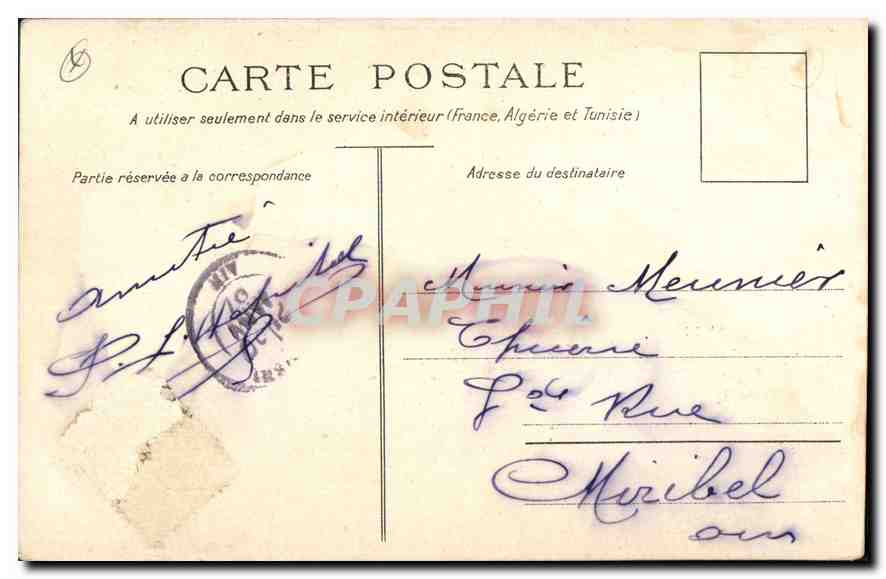 CARTE POSTALE
A utiliser seulement dans le service intérieur (France, Algérie et Tunisie)
Partie réservée a la correspondance
Adresse du destinataire
amitié
P. L'Hopital
AIN
07
CPAPHIL
Meunier
Epicerie
Gde Rue
Miribel
Ain